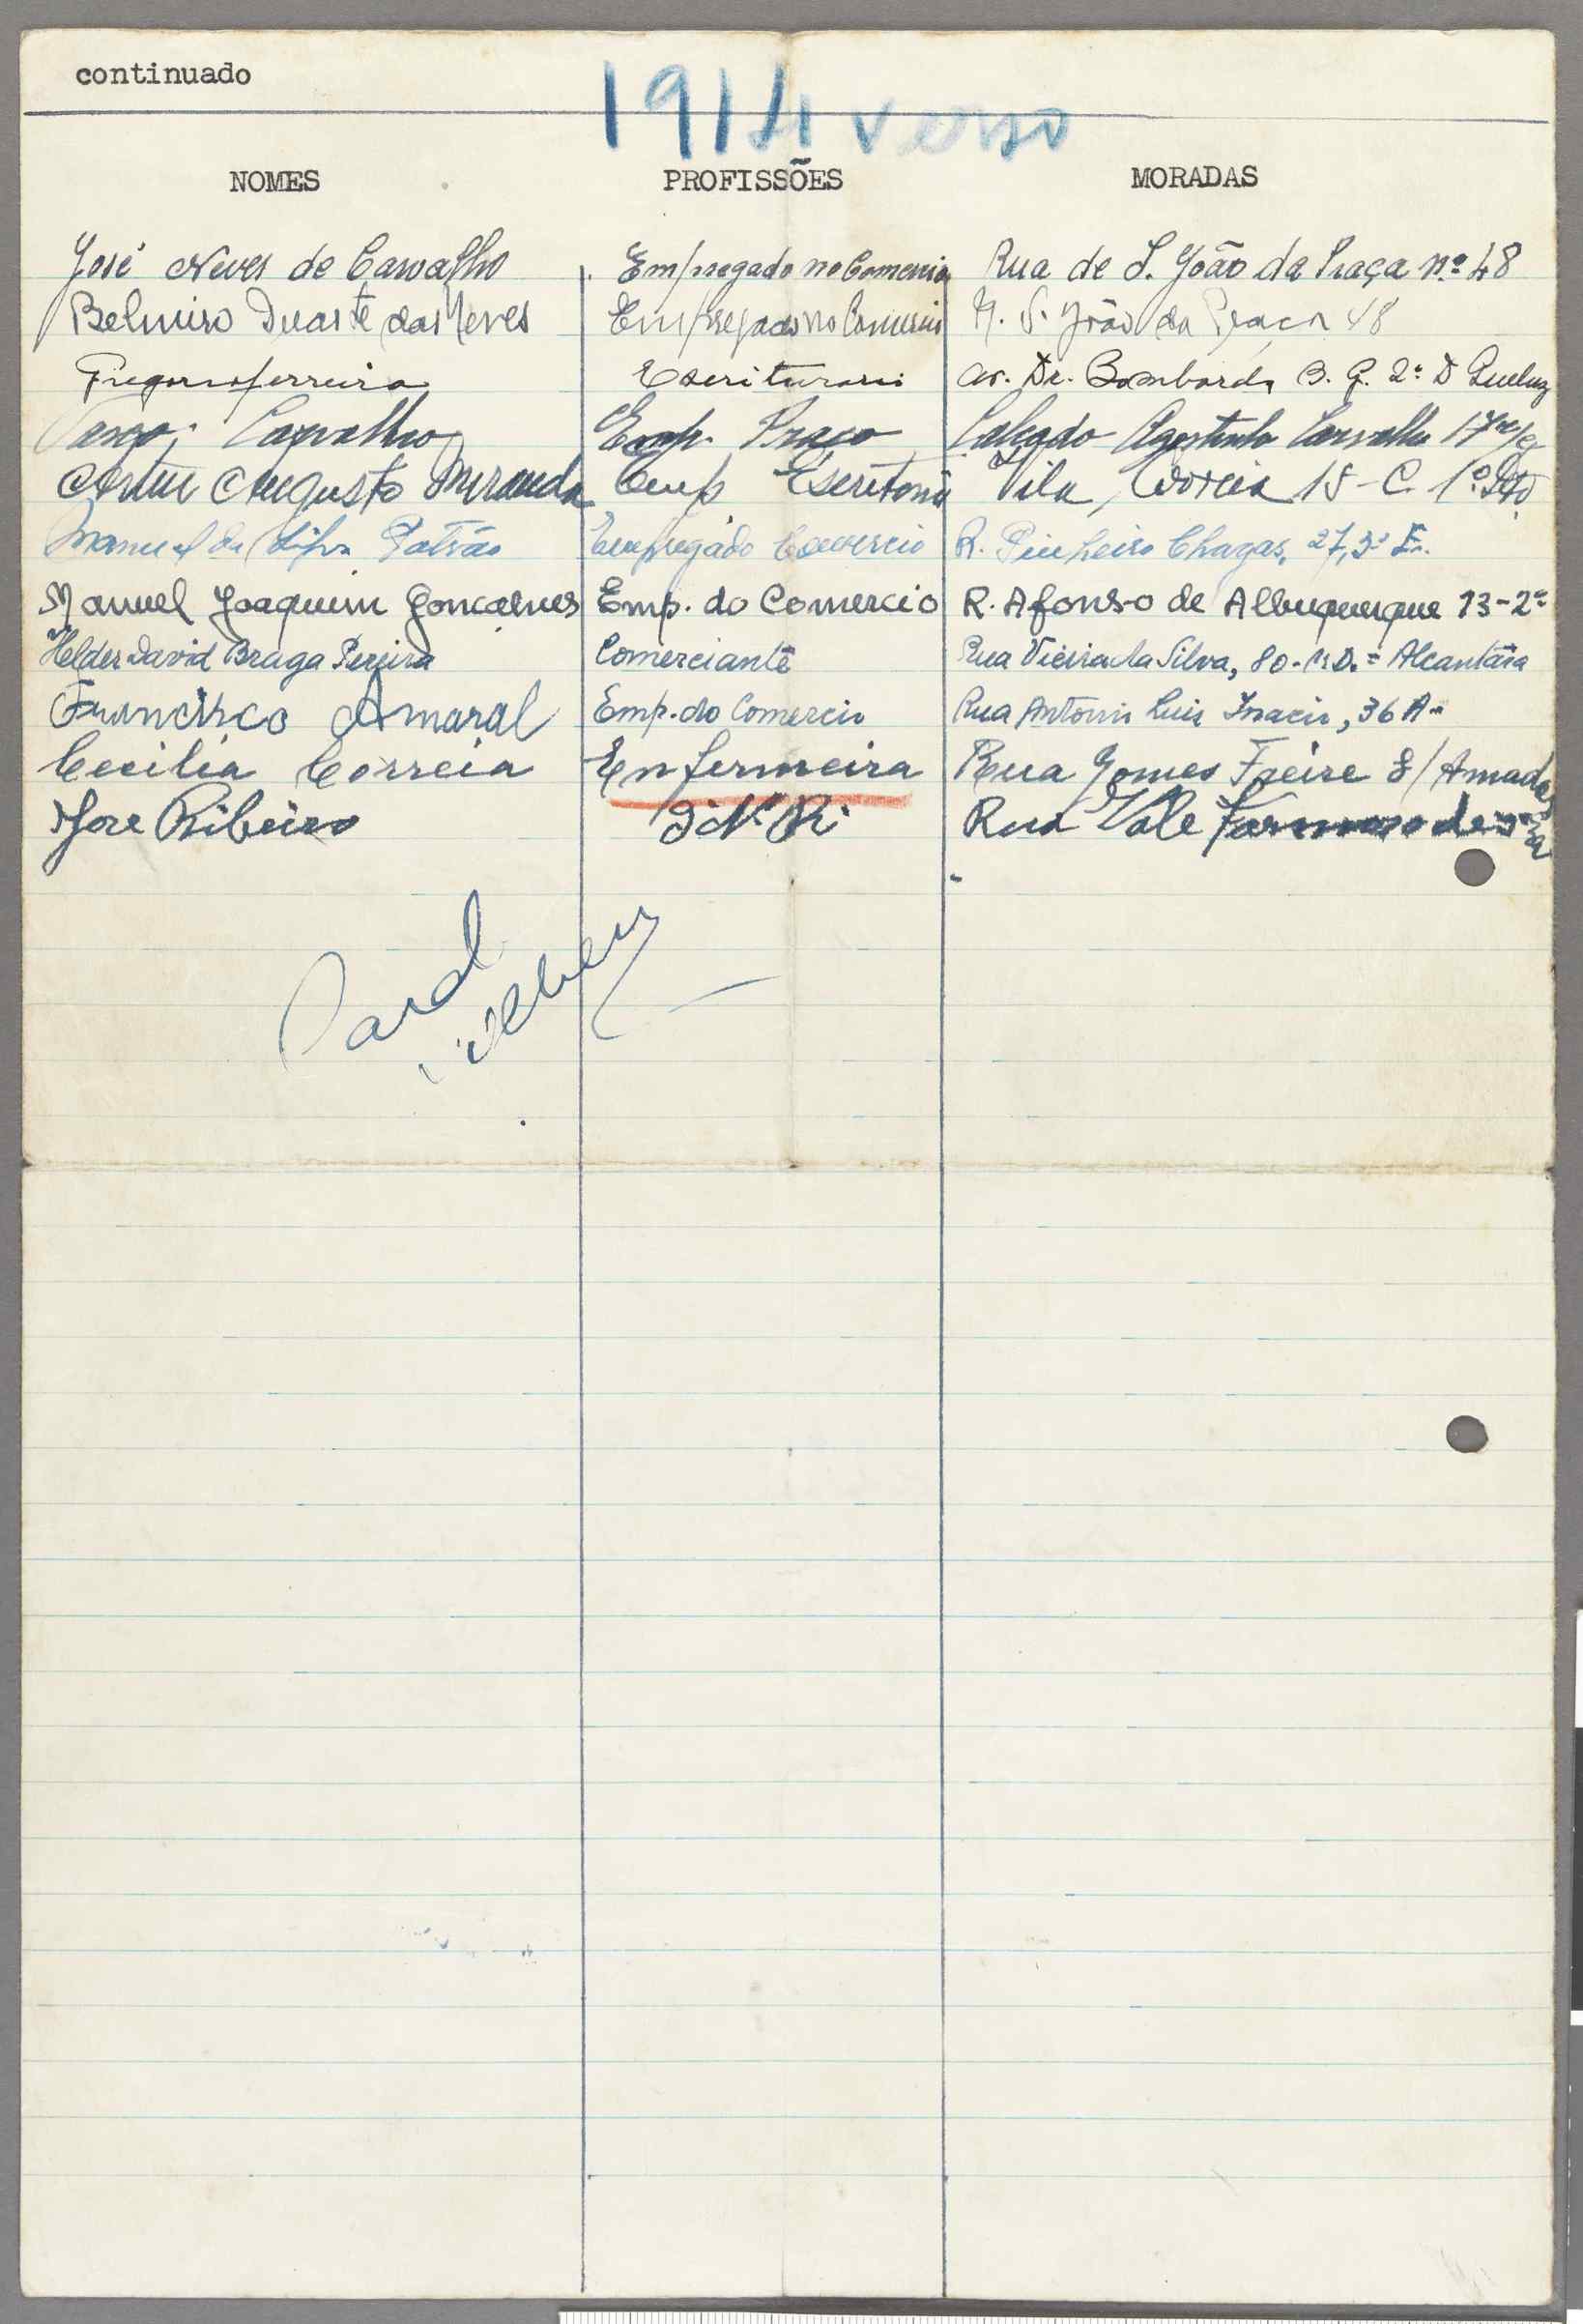 continuado
1914 verso
NOMES PROFISSÕES MORADAS
José Neves de Carvalho Empregado no Comercio Rua de S. João da Praça nº 48
Belmiro Duarte das Neves Empregado no Comercio R. S. João da Praça 48
Gregorio Ferreira Escriturario Av. Dr. Bombarda B. G. 2º D Queluz
Carvalho Emp. Praça Calçada Agostinho Carvalho 17
Augusto Miranda Emp Escritorio Vila Correia 15-C. 1º
Manuel da Silva Patrão Empregado Comercio R. Pinheiro Chagas, 27, 3º E.
Manuel Joaquim Goncalves Emp. do Comercio R. Afonso de Albuquerque 13-2º
Helder David Braga Pereira Comerciante Rua Vieira da Silva, 80. Alcantâra
Francisco Amaral Emp. do Comercio Rua Antonio Luis Inacio, 36 A
Cecilia Correia Enfermeira Rua Gomes Freire 8 / Amadora
Jose Ribeiro Rua Vale Formoso de